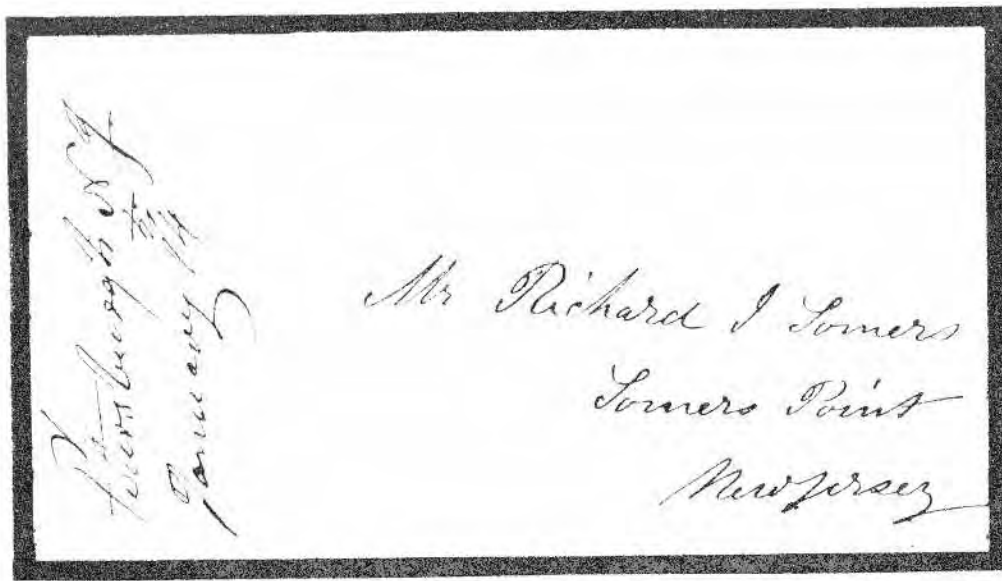 Petersburgh N J
January 14
Mr Richard I Somers
Somers Point
New Jersey